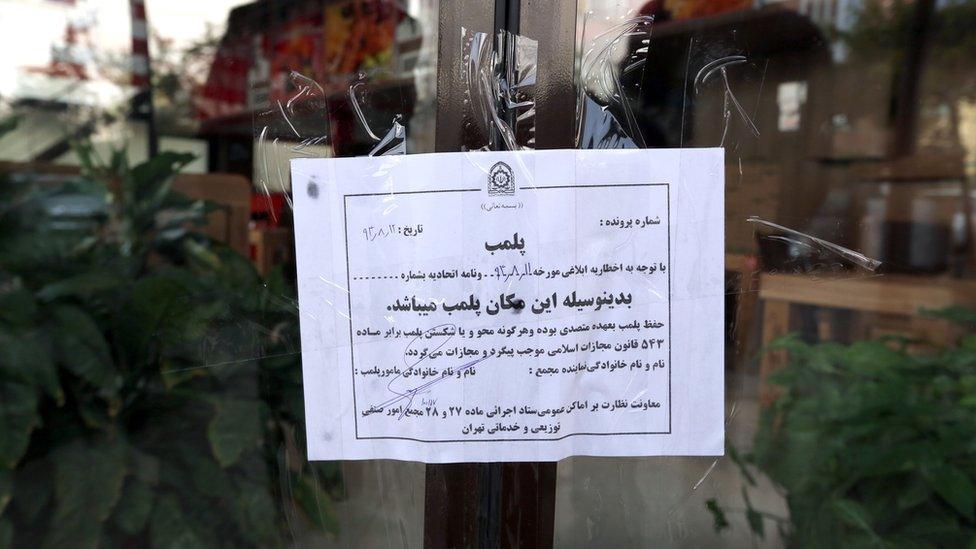 ((بسمه تعالی))
شماره پرونده :
تاریخ : ۹۳٫۸٫۱۲
پلمب
با توجه به اخطاریه ابلاغی مورخه ۹۳٫۸٫۱۱ ونامه اتحادیه بشماره
بدینوسیله این مکان پلمب میباشد.
حفظ پلمب بعهده متصدی بوده وهرگونه محو و یا شکستن پلمب برابر ماده
۵۴۳ قانون مجازات اسلامی موجب پیگرد و مجازات می‌گردد.
نام و نام خانوادگی نماینده مجمع :
نام و نام خانوادگی مامورپلمب :
معاونت نظارت بر اماکن عمومی ستاد اجرائی ماده ۲۷ و ۲۸ مجمع امور صنفی
توزیعی و خدماتی تهران